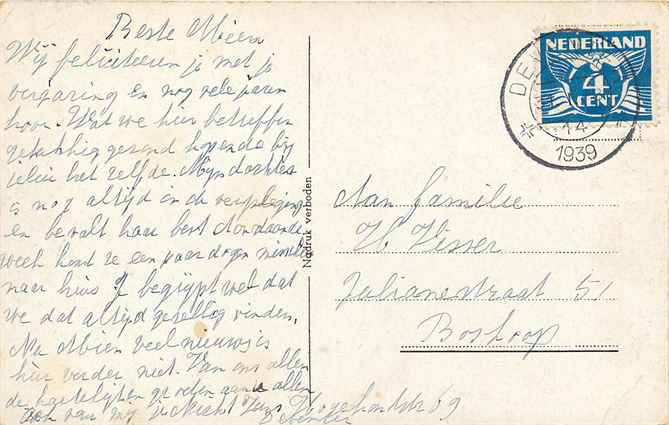 Beste Mien
Wij feliciteeren je met je
verjaring en nog vele jaren
hoor. Wat we hier betreffen
gelukkig gezond hopende bij
jelui het zelfde. Mijn dochter
is nog altijd in de verpleging
en bevalt haar best Aanstaande
week komt ze een paar dagen
naar huis je begrijpt wel dat
we dat altijd gezellig vinden.
Nu Mien veel nieuws is
hier verder niet. Van ons allen
de hartelijke groeten aan u allen
ook van mij
69
Deventer
Nadruk verboden
NEDERLAND
4
CENT
DEV
14
1939
Aan familie
H. Visser
Julianastraat 51
Boskoop